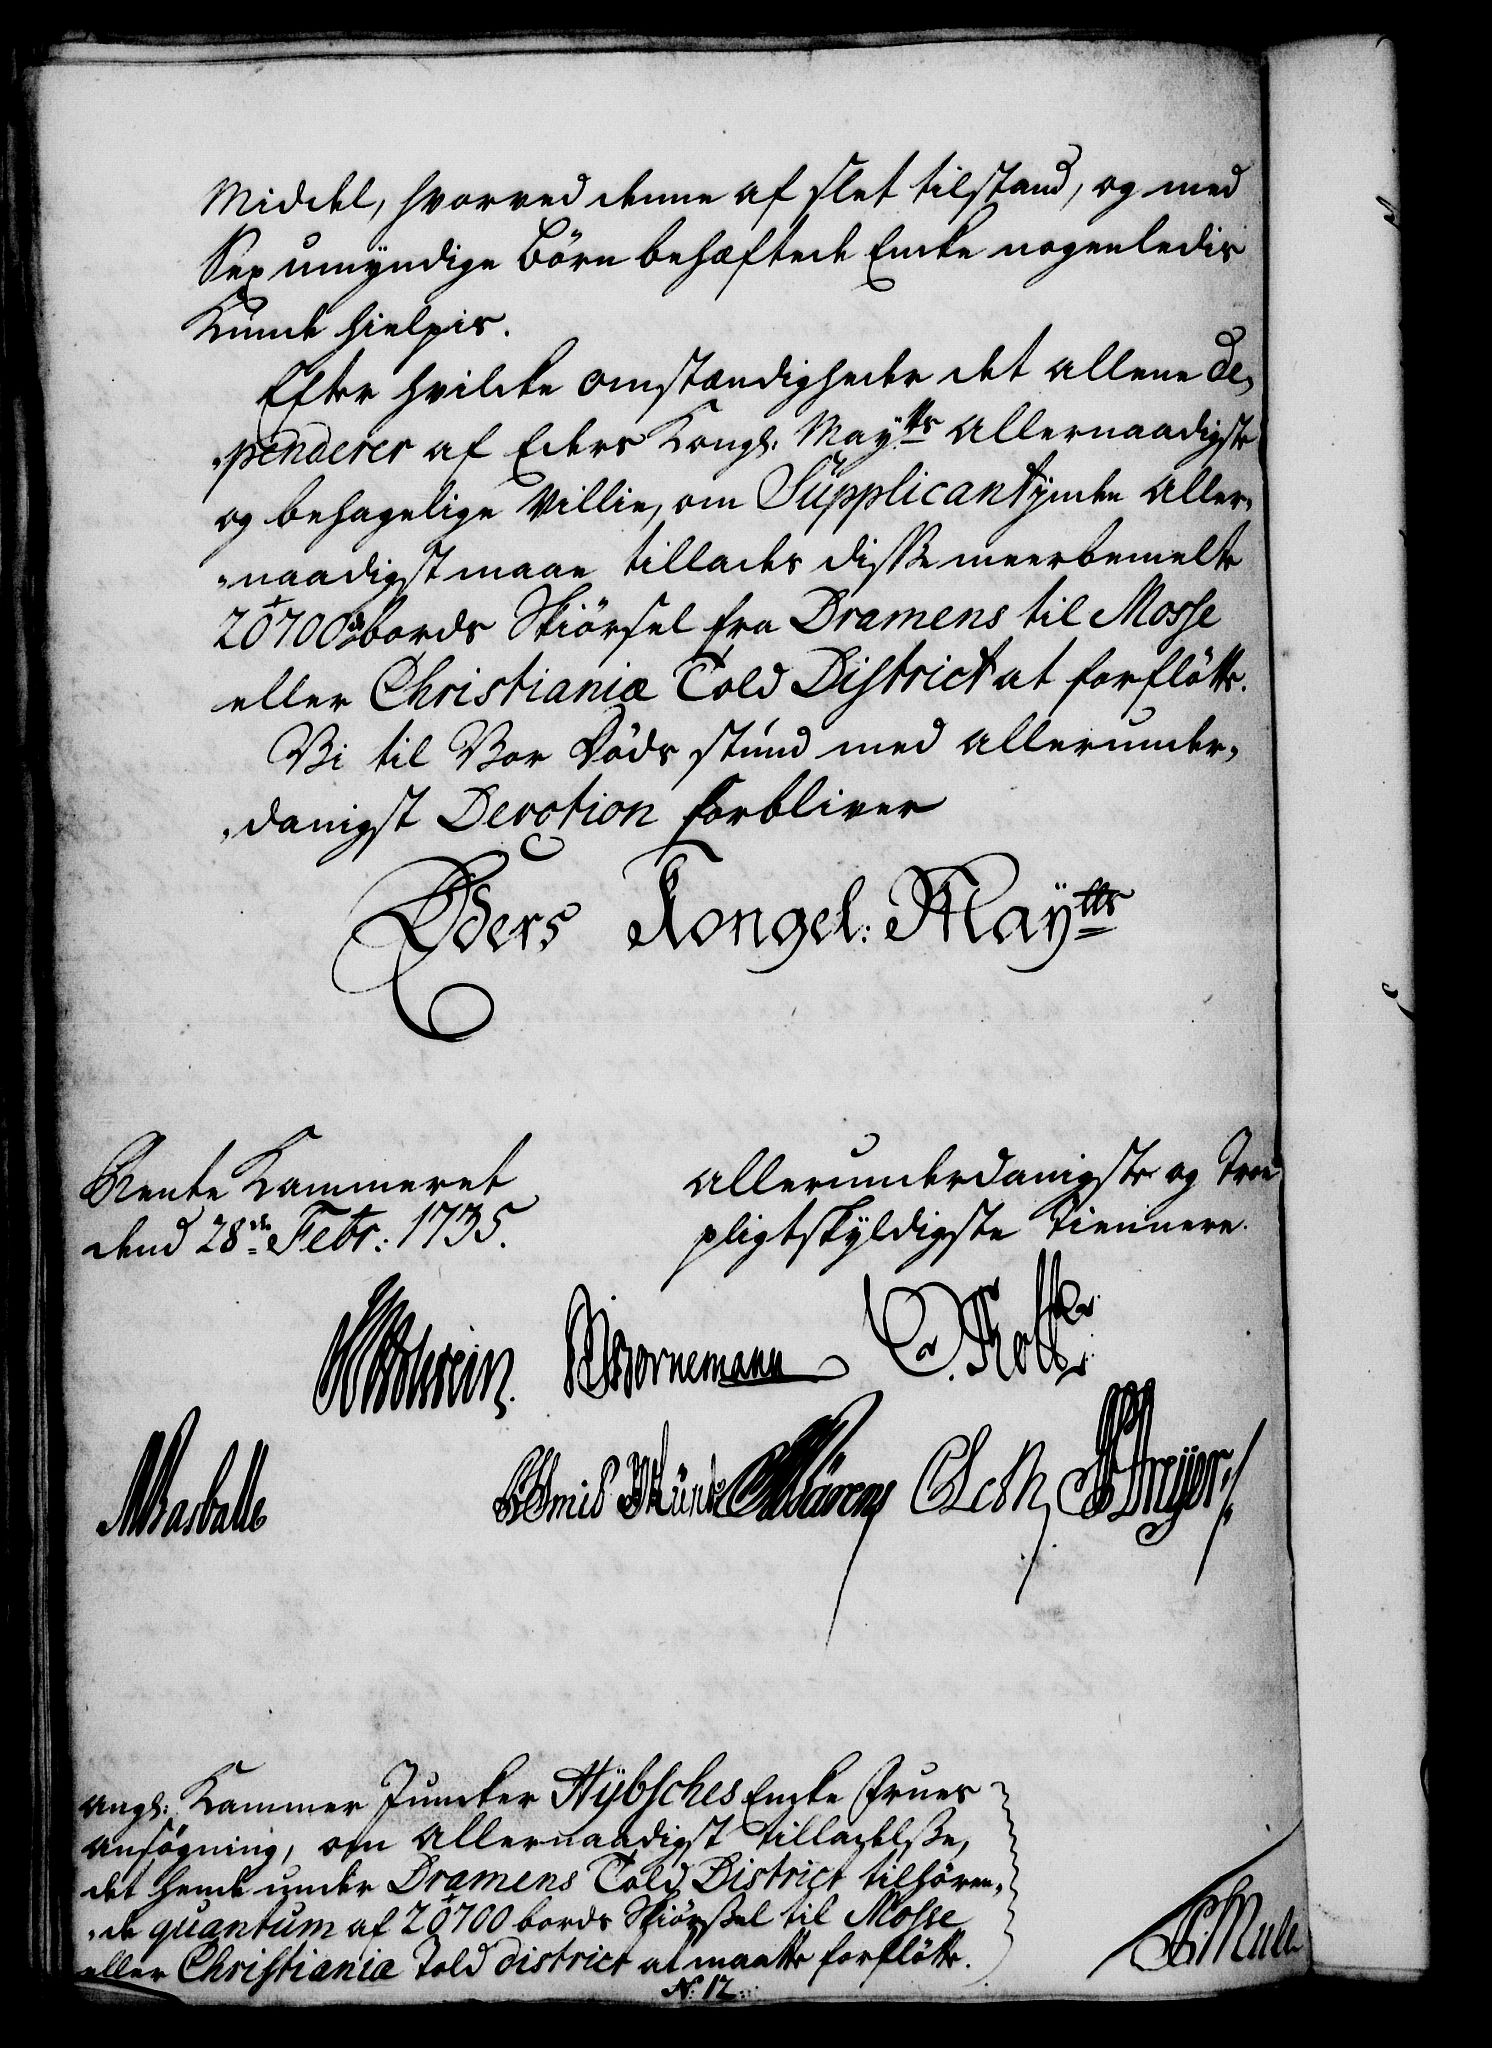 Middel, hvorved denne af slet tilstand, og med
Sex umyndige Börn behæftede Encke nogenledis
Kunde hielpis.
Efter hvilcke omstændigheder det allene de„
„penderer af Eders Kongl: Mayᵗᵗˢ allernaadigste
og behagelige Villie, om Supplicantinden aller„
„naadigst maae tillades disse meerbemelte
20700 bords Skiörsel fra Dramens til Mosse
eller Christianiæ Told District at forflötte.
Vi til Vor Döds stund med allerunder„
„danigst Devotion forbliver
Eders Kongel: Mayᵗᵗˢ
Rente Kammeret
dend 28ᵈᵉ Febr: 1735.
allerunderdanigste og Troe
pligtskyldigste Tiennere.
Bornemann
angl: Kammer Juncker Hÿbsches Encke Frues
ansögning, om allernaadigst tilladelsse,
det hende under Dramens Told District tilhören„
„de quantum af 20700 bords Skiörssel til Mosse
eller Christianiæ Told district at maatte forflötte.
N: 12.